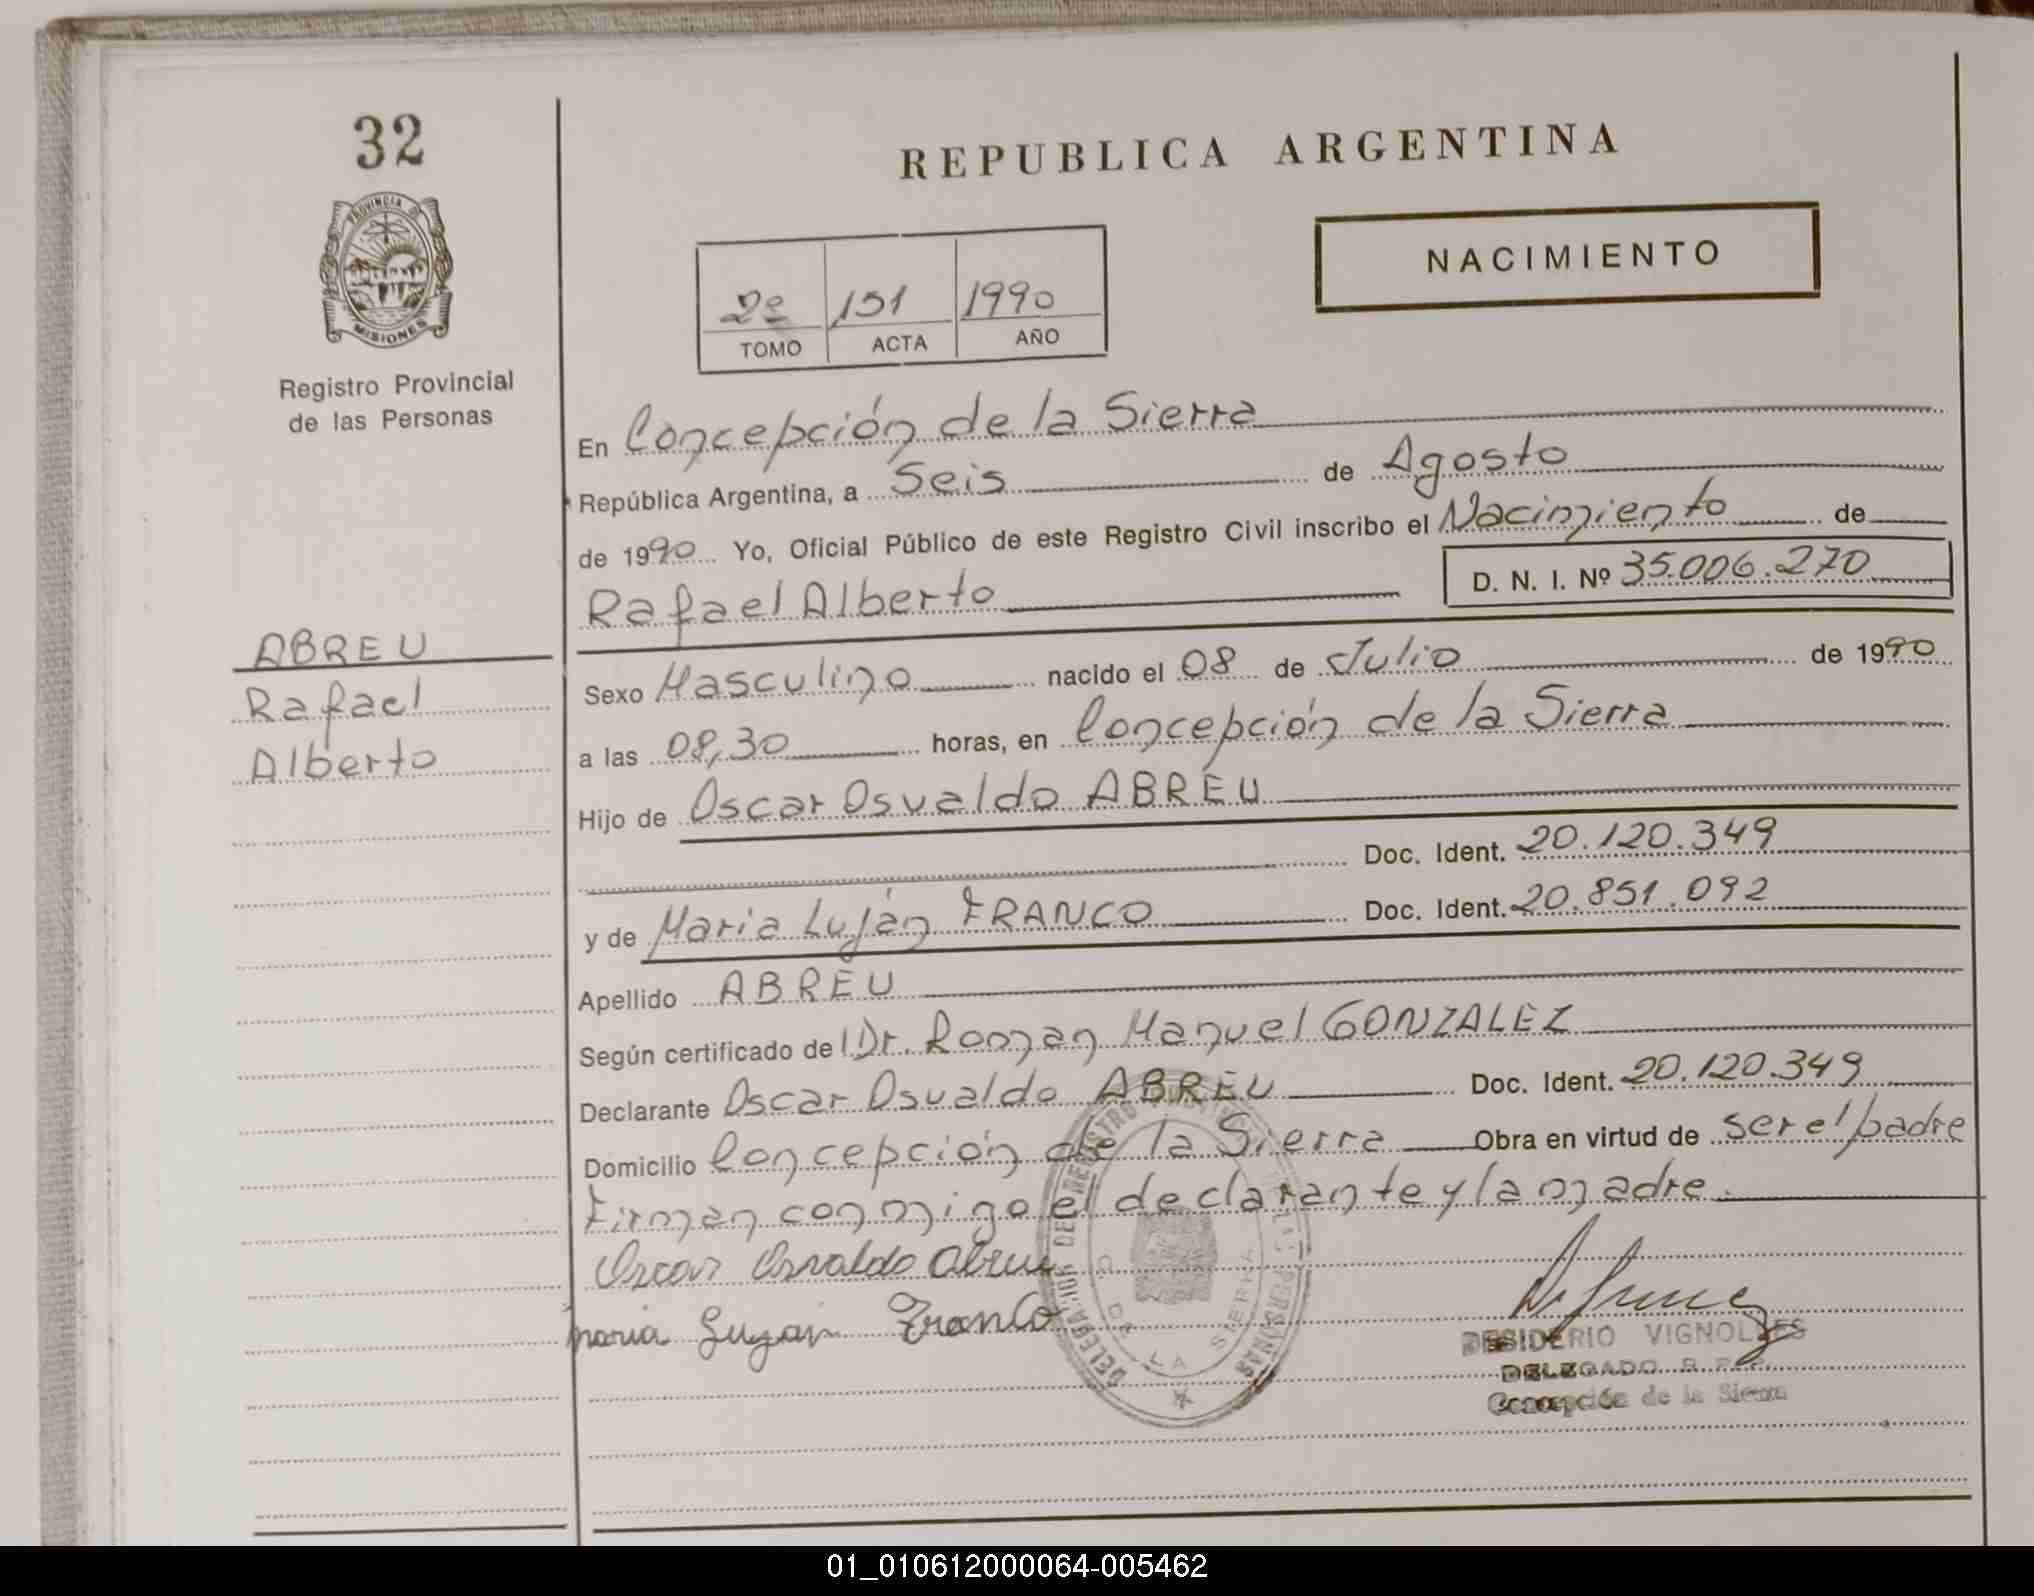 32
PROVINCIA DE
MISIONES
Registro Provincial
de las Personas
ABREU
Rafael
Alberto
REPUBLICA ARGENTINA
NACIMIENTO
2º 151 1990
TOMO ACTA AÑO
En Concepción de la Sierra
República Argentina, a Seis de Agosto
de 1990 Yo, Oficial Público de este Registro Civil inscribo el Nacimiento de
Rafael Alberto D. N. I. Nº 35.006.270
Sexo Masculino nacido el 08 de Julio de 1990
a las 08,30 horas, en Concepción de la Sierra
Hijo de Oscar Osvaldo ABREU
Doc. Ident. 20.120.349
y de Maria Luján FRANCO Doc. Ident. 20.851.092
Apellido ABREU
Según certificado de Dr. Roman Manuel GONZALEZ
Declarante Oscar Osvaldo ABREU Doc. Ident. 20.120.349
Domicilio Concepción de la Sierra Obra en virtud de ser el padre
Firman conmigo el declarante y la madre.
Oscar Osvaldo Abreu
maria Lujan Franco
DELEGACION DEL REGISTRO PERSONAS
DE LA SIERRA
DESIDERIO VIGNOLLES
DELEGADO R. P. P.
Concepción de la Sierra
01_010612000064-005462